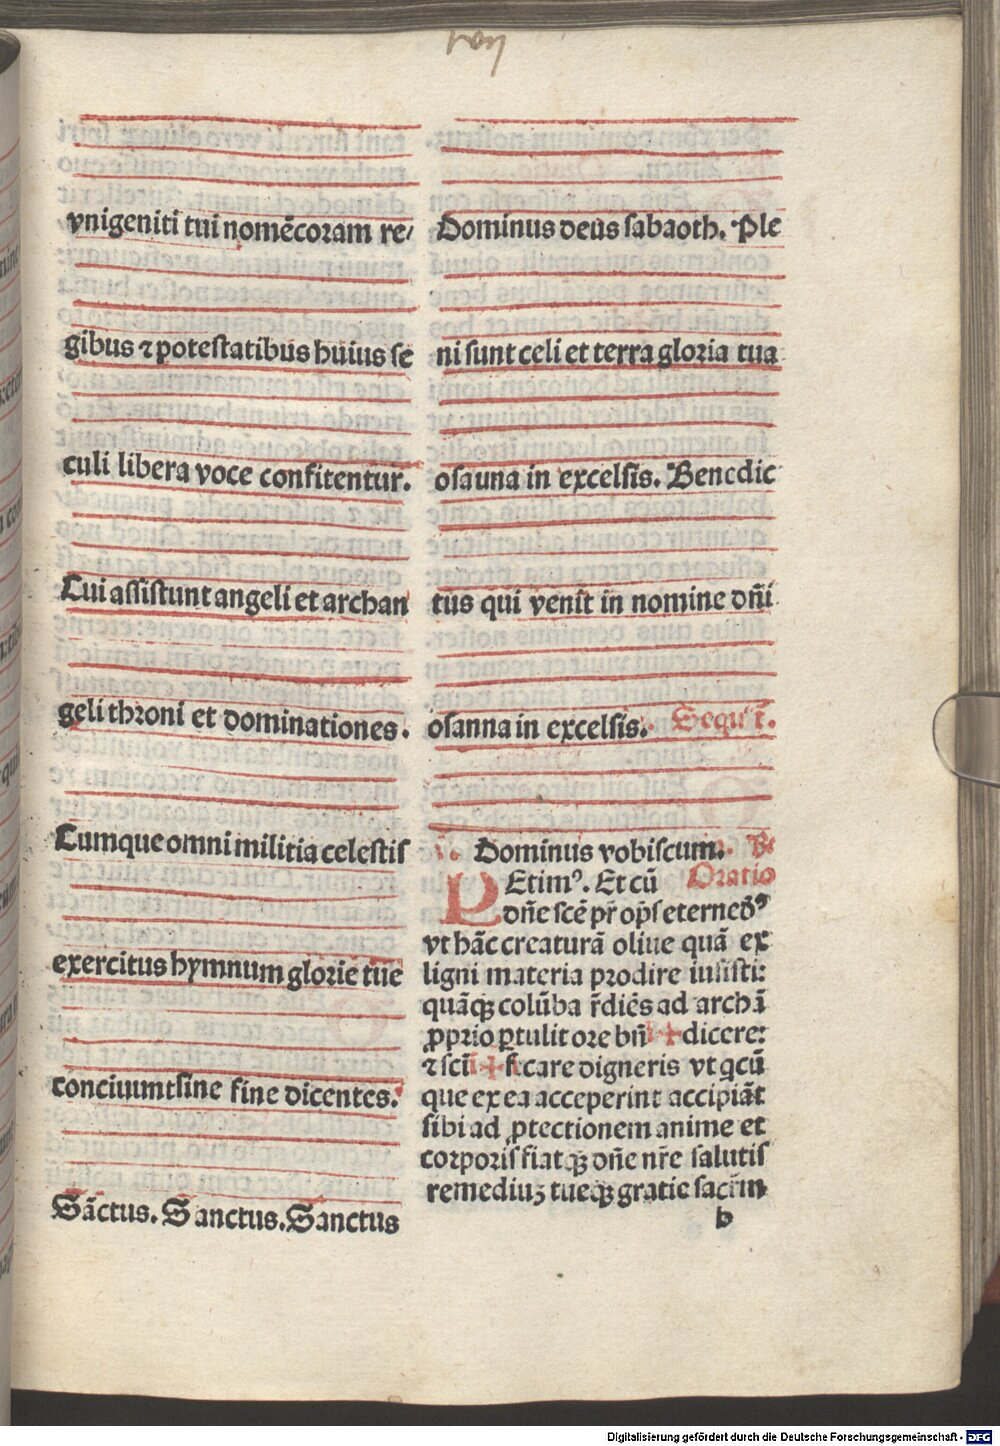 vnigeniti tui nomē coram re/
gibus ⁊ potestatibus huius se
culi libera voce confitentur.
Cui assistunt angeli et archan
geli throni et dominationes.
Cumque omni militia celestis
exercitus hymnum glorie tue
conciuuntsine fine dicentes.
Sāctus. Sanctus. Sanctus
Dominus deus sabaoth. Ple
ni sunt celi et terra gloria tua
osauna in excelsis. Benedic
tus qui venit in nomine dn̄i
osanna in excelsis. Sequit̄.
Dominus vobiscum. R̄
Etimꝰ. Et cū Oratio
Dn̄e scē pr̄ op̄s eterne dꝰ
vt hāc creaturā oliue quā ex
ligni materia prodire iussisti:
quāqꝫ colūba r̄diēs ad archā
ꝓprio ꝑtulit ore bn̄ ✠ dicere:
⁊ scī ✠ ficare digneris vt qcū
que ex ea acceperint accipiāt
sibi ad ꝓtectionem anime et
corporis fiatqꝫ dn̄e nr̄e salutis
remediuꝫ tueqꝫ gratie sacr̄m
b
Digitalisierung gefördert durch die Deutsche Forschungsgemeinschaft - DFG